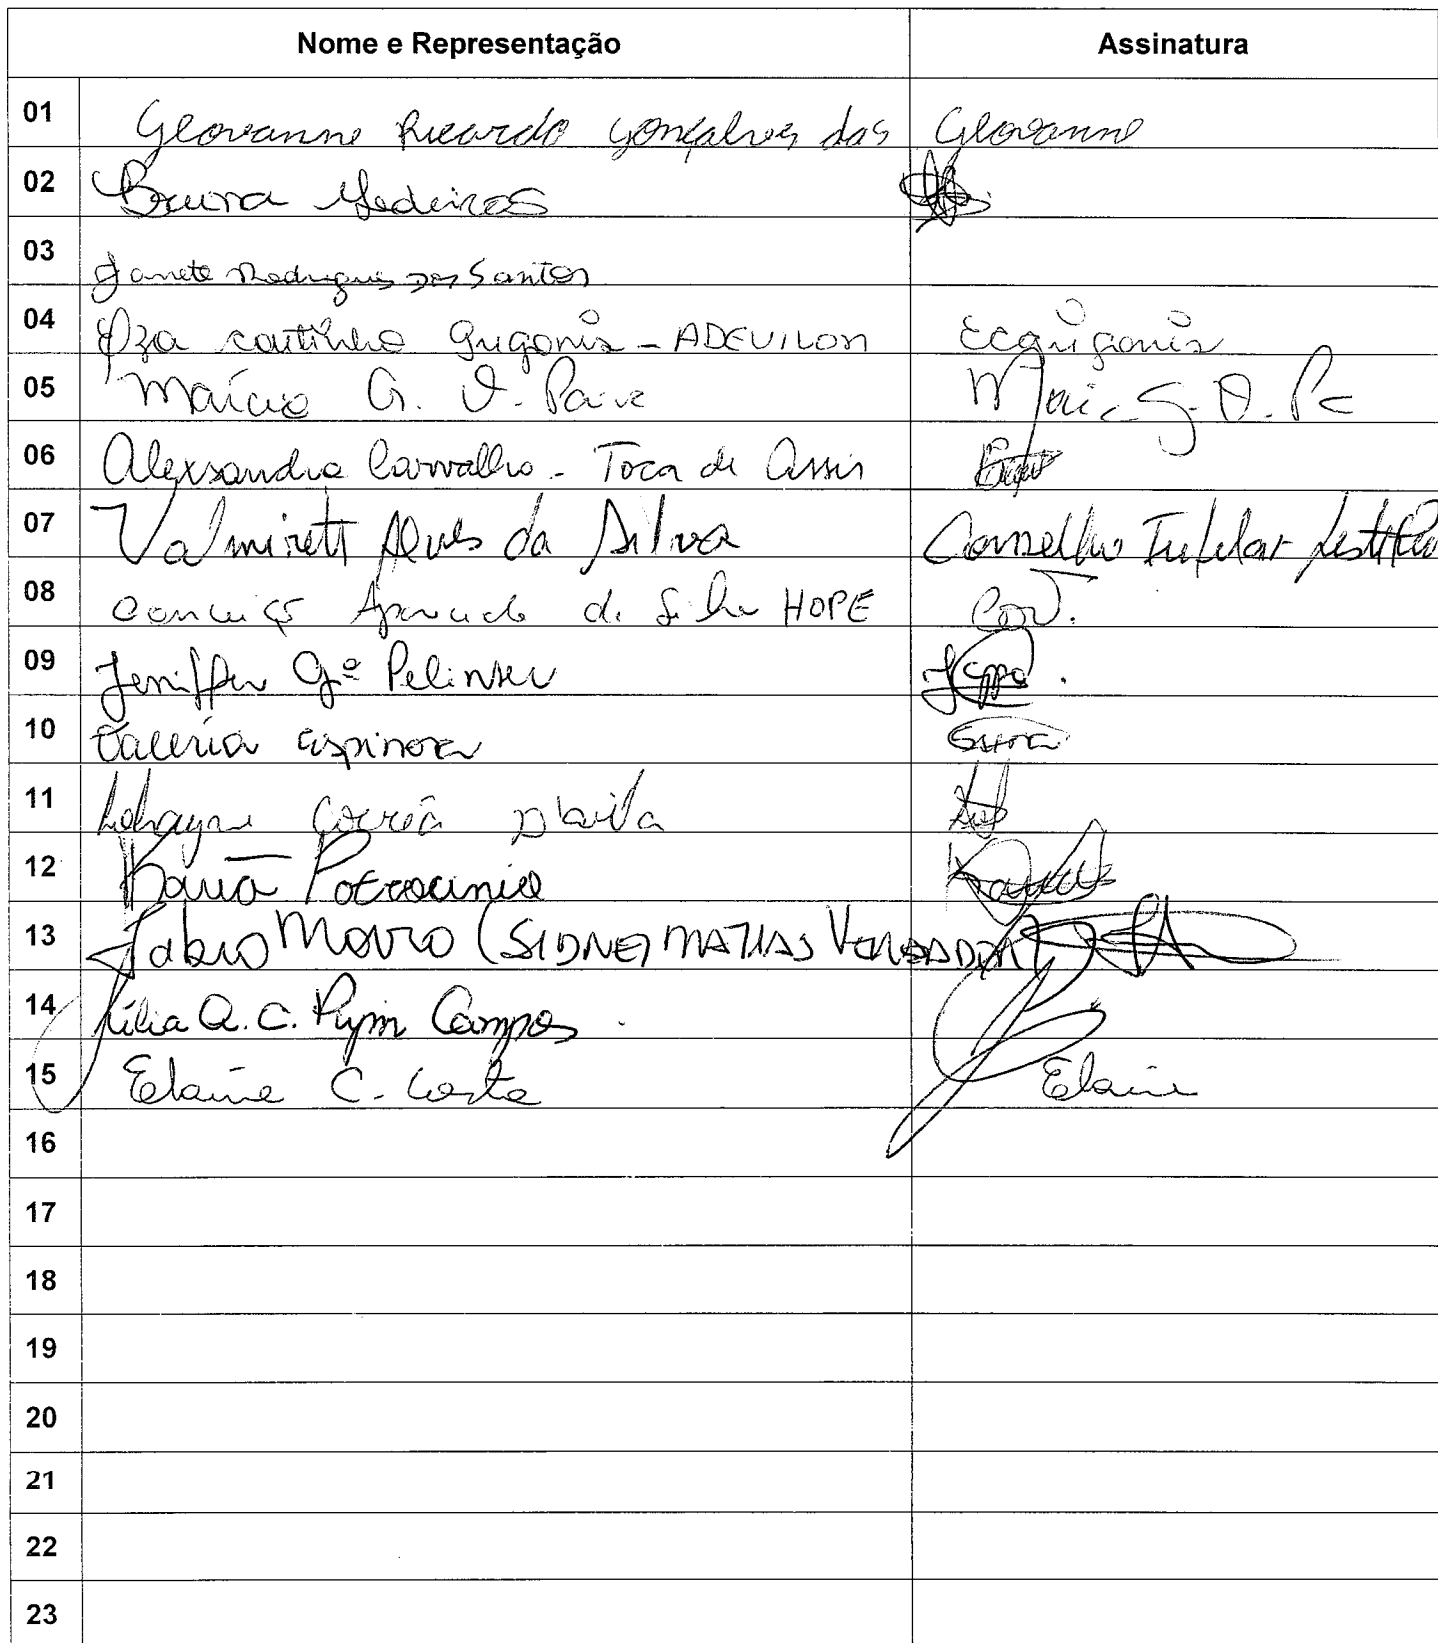 Nome e Representação Assinatura
01 Geovanne Ricardo Gonçalves das Geovanne
02 Bruna Medeiros
03 Janete Rodrigues dos Santos
04 Elza coutinho Grigonis - ADEVILON ECGrigonis
05 Marcio G. O. Paiva
06 Alexsandra Carvalho - Toca de Assis
07 Valmirett Alves da Silva Conselho Tutelar
08 Aparecida da Silva HOPE
09 Jeniffer Gª Pelinser
10 Valeria Espinosa
11 Correa D'avila
12 Patrocinio
13 Fabio Mouro (SIDNEI MATIAS VEREADOR)
14 Júlia A. C. Campos
15 Elaine C. Costa Elaine
16
17
18
19
20
21
22
23